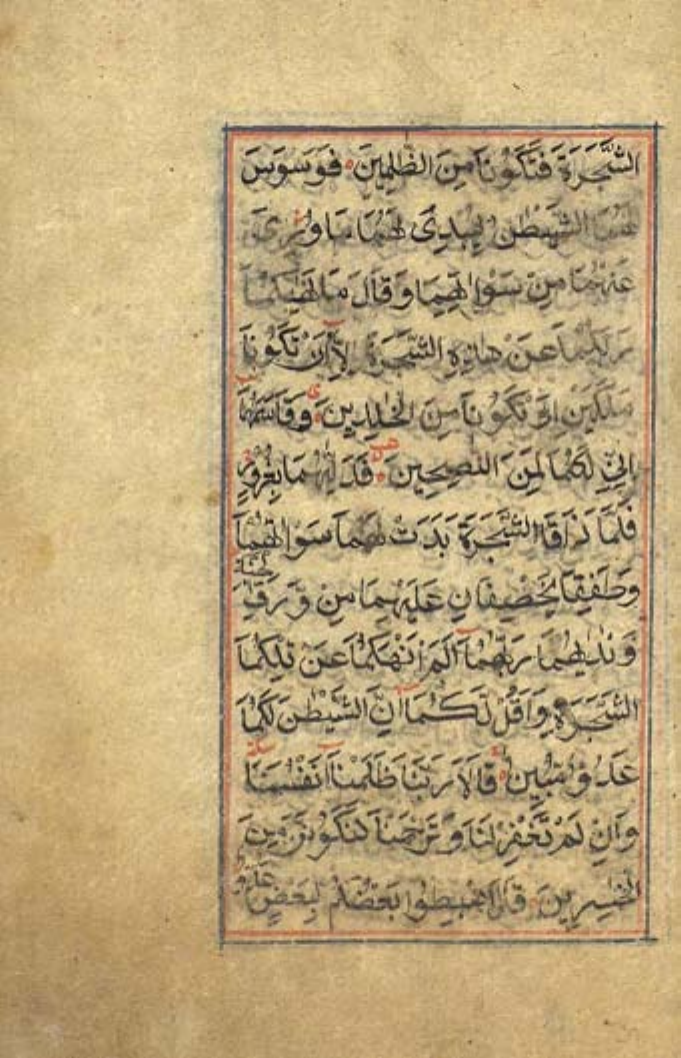 الشَّجَرَةَ فَتَكُونَا مِنَ الظّٰلِمِينَ فَوَسْوَسَ
لَهُمَا الشَّيْطٰنُ لِيُبْدِىَ لَهُمَا مَا وُرِىَ
عَنْهُمَا مِنْ سَوْاٰتِهِمَا وَقَالَ مَا نَهٰيكُمَا
رَبُّكُمَا عَنْ هٰذِهِ الشَّجَرَةِ اِلَّا اَنْ تَكُونَا
مَلَكَيْنِ اَوْ تَكُونَا مِنَ الْخٰلِدِينَ وَقَاسَمَهُمَا
اِنِّى لَكُمَا لَمِنَ النّٰصِحِينَ فَدَلّٰهُمَا بِغُرُورٍ
فَلَمَّا ذَاقَا الشَّجَرَةَ بَدَتْ لَهُمَا سَوْاٰتُهُمَا
وَطَفِقَا يَخْصِفَانِ عَلَيْهِمَا مِنْ وَرَقِ الْجَنَّةِ
وَنَادٰيهُمَا رَبُّهُمَا اَلَمْ اَنْهَكُمَا عَنْ تِلْكُمَا
الشَّجَرَةِ وَاَقُلْ لَكُمَا اِنَّ الشَّيْطٰنَ لَكُمَا
عَدُوٌّ مُبِينٌ قَالَا رَبَّنَا ظَلَمْنَا اَنْفُسَنَا
وَاِنْ لَمْ تَغْفِرْ لَنَا وَتَرْحَمْنَا لَنَكُونَنَّ مِنَ
الْخٰسِرِينَ قَالَ اهْبِطُوا بَعْضُكُمْ لِبَعْضٍ عَدُوٌّ